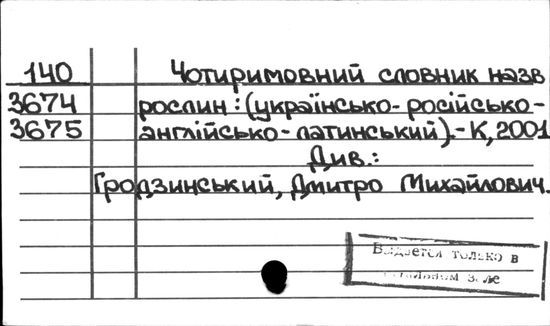 140 Чотиримовний словник назв
3674 рослин: (українсько-російсько-
3675 англійсько-латинський).-К,2001
Див.:
Гродзинський, Дмитро Михайлович.
Выдается только в
зале